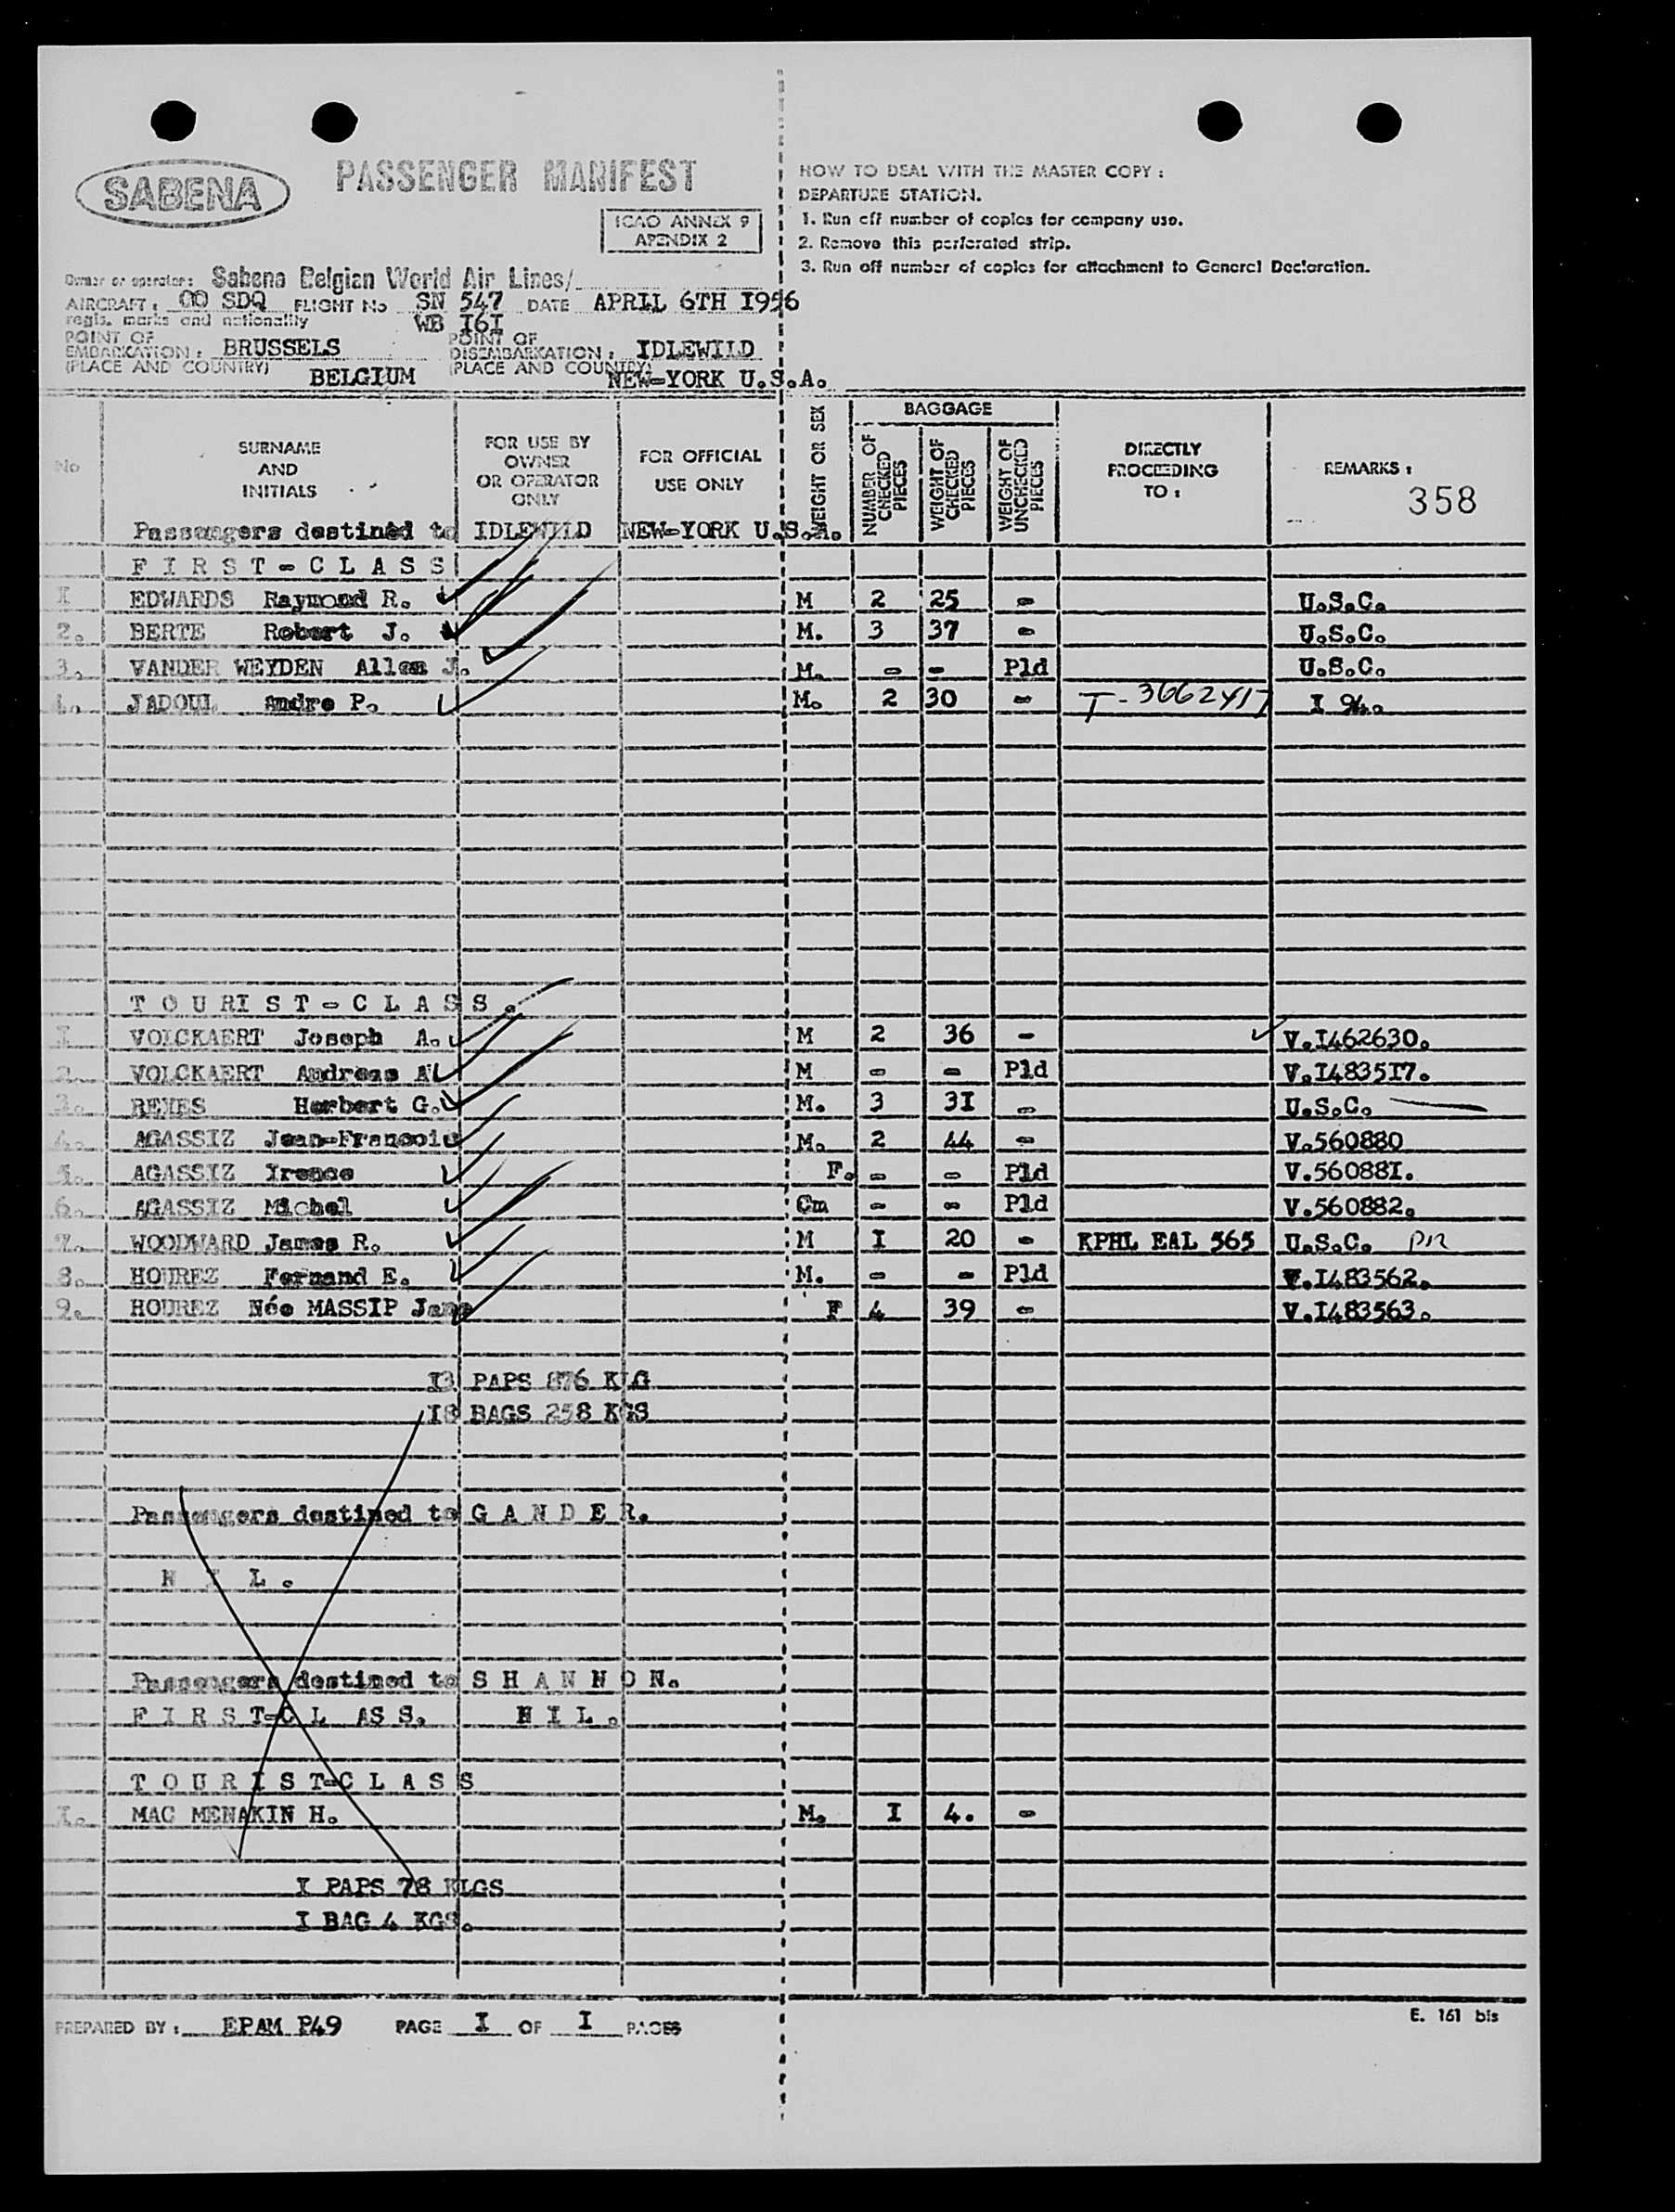 SABENA
PASSENGER MANIFEST
ICAO ANNEX 9
APENDIX 2
HOW TO DEAL WITH THE MASTER COPY :
DEPARTURE STATION.
1. Run off number of copies for company use.
2. Remove this perforated strip.
3. Run off number of copies for attachment to General Declaration.
Owner or operator: Sabena Belgian World Air Lines/
AIRCRAFT : OO SDQ FLIGHT No SN 547 DATE APRIL 6TH I956
regis. marks and nationality WB I6I
POINT OF EMBARKATION : BRUSSELS POINT OF DISEMBARKATION : IDLEWILD
(PLACE AND COUNTRY) BELGIUM (PLACE AND COUNTRY) NEW-YORK U.S.A.
No
SURNAME
AND
INITIALS
FOR USE BY
OWNER
OR OPERATOR
ONLY
FOR OFFICIAL
USE ONLY
WEIGHT OR SEX
BAGGAGE
NUMBER OF CHECKED PIECES
WEIGHT OF CHECKED PIECES
WEIGHT OF UNCHECKED PIECES
DIRECTLY
PROCEEDING
TO :
REMARKS :
358
Passengers destined to IDLEWILD NEW-YORK U.S.A.
F I R S T - C L A S S
I EDWARDS Raymond R. M 2 25 - U.S.C.
2. BERTE Robert J. M. 3 37 - U.S.C.
3. VANDER WEYDEN Allen J. M. - - Pld U.S.C.
4. JADOUL Andre P. M. 2 30 - T-3662417 I 94.
T O U RI S T - C L A S S .
I VOLCKAERT Joseph A. M 2 36 - V.I462630.
2. VOLCKAERT Andreas A M - - Pld V.I4835I7.
3. REMES Herbert G. M. 3 3I - U.S.C.
4. AGASSIZ Jean-Francois M. 2 44 - V.560880
5. AGASSIZ Irence F. - - Pld V.56088I.
6. AGASSIZ Michel Cm - - Pld V.560882.
7. WOODWARD James R. M I 20 - KPHL EAL 565 U.S.C.
8. HOUREZ Fernand E. M. - - Pld V.I483562.
9. HOUREZ Née MASSIP Jane F 4 39 - V.I483563.
I3 PAPS 876 KLG
I8 BAGS 258 KGS
Passengers destined to G A N D E R.
N I L .
Passengers destined to S H A N N O N.
F I R S T-C L AS S. N I L .
T O U R I S T-C L A S S
I. MAC MENAKIN H. M. I 4. -
I PAPS 78 KLGS
I BAG 4 KGS.
PREPARED BY : EPAM P49 PAGE I OF I PAGES
E. 161 bis